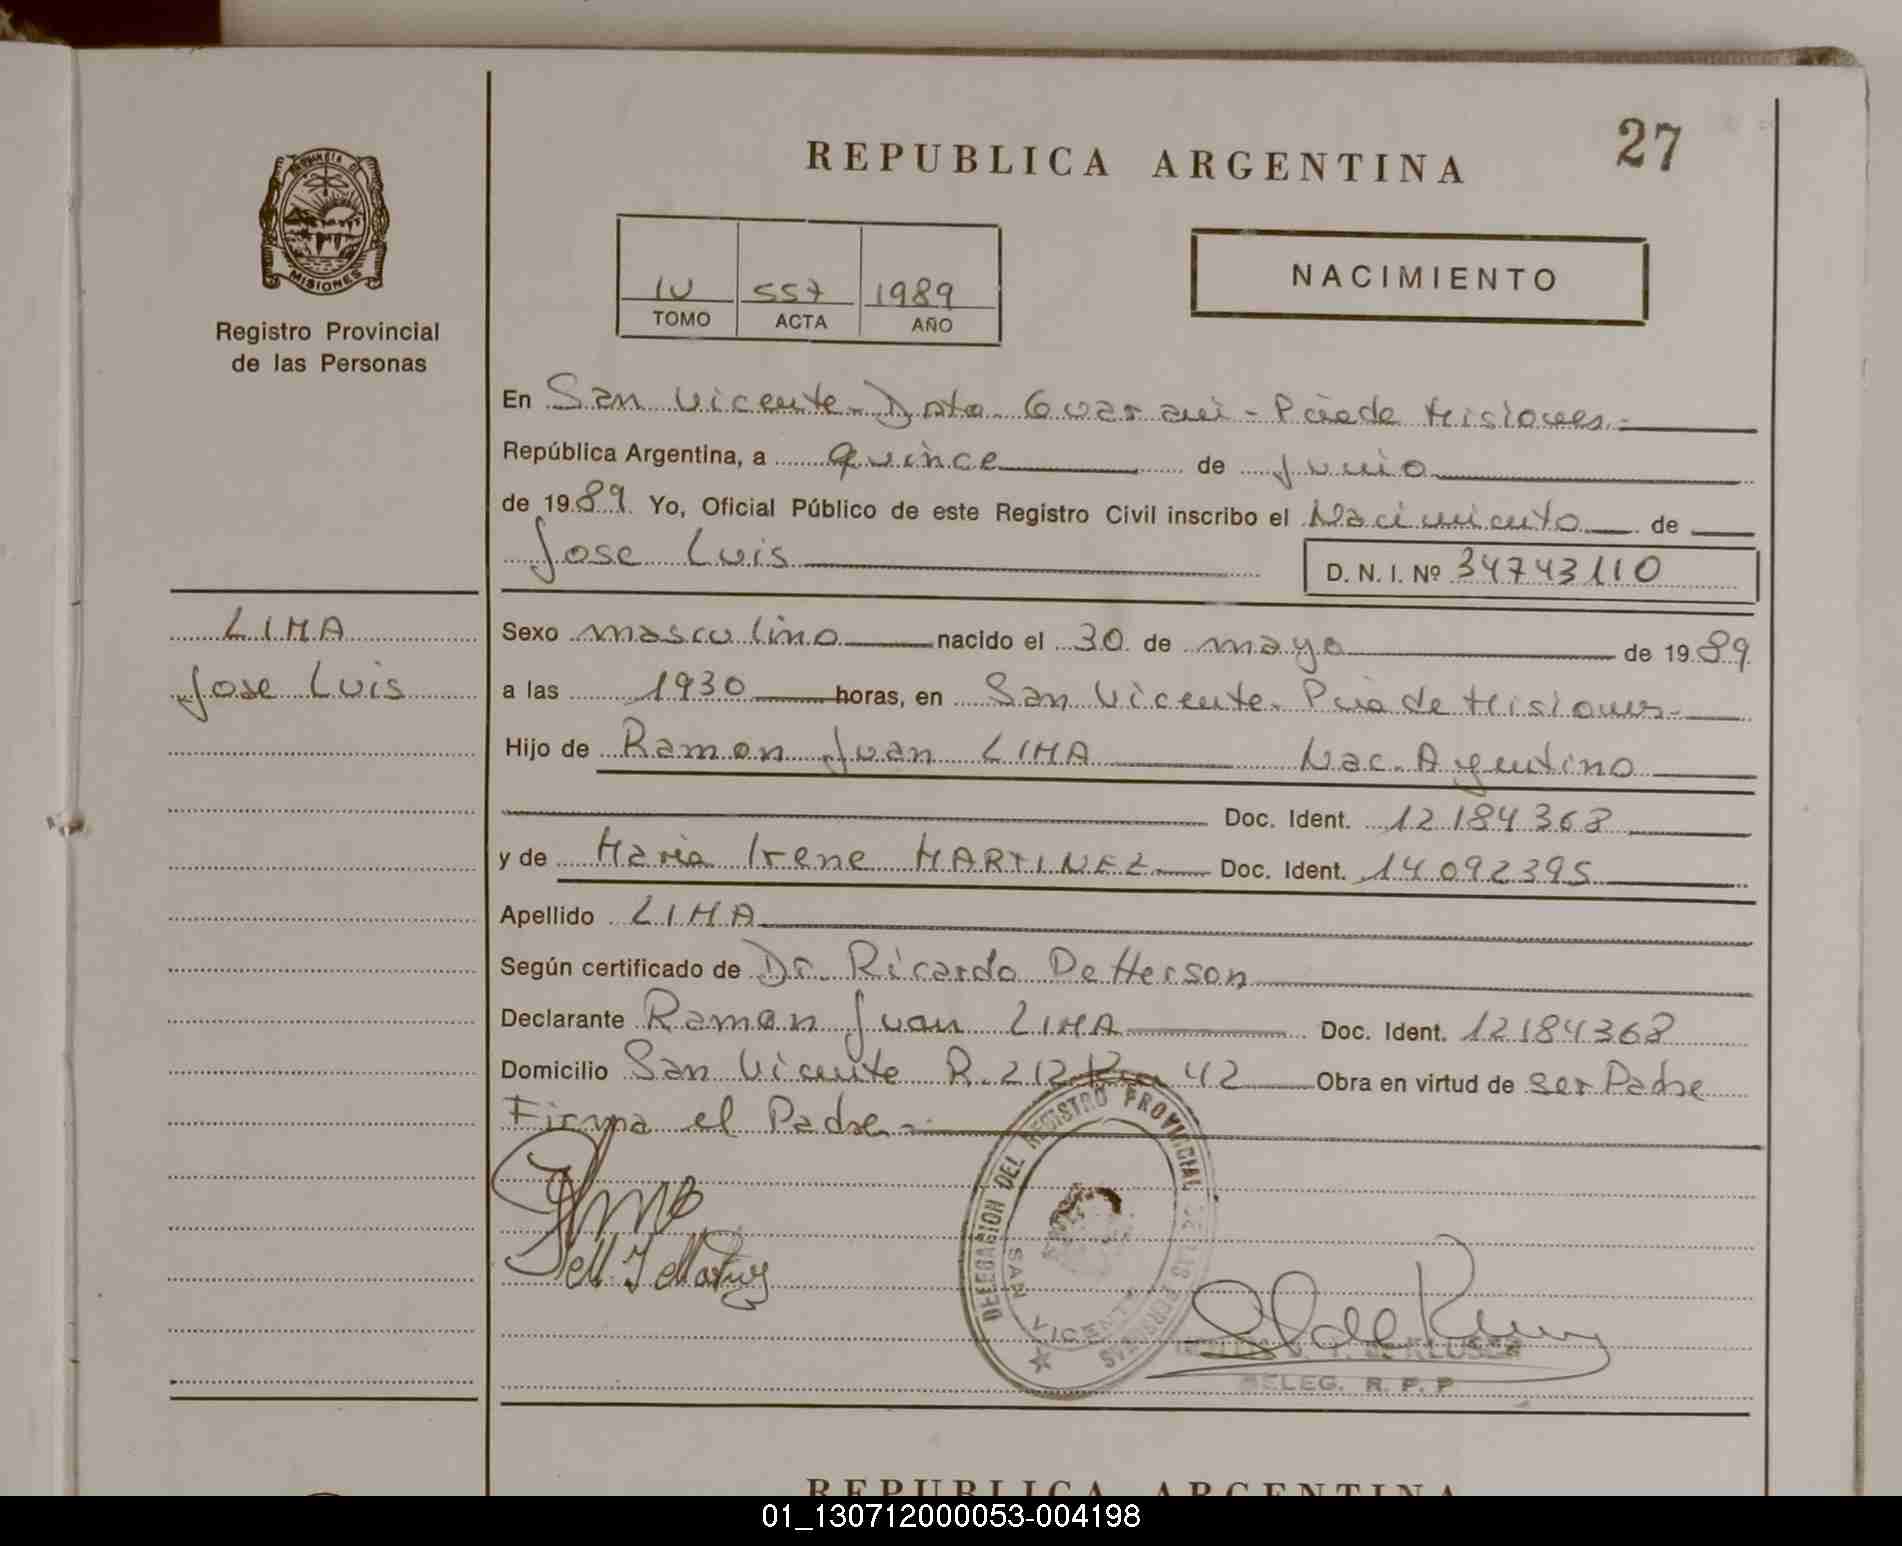 REPUBLICA ARGENTINA
27
PROVINCIA DE
MISIONES
Registro Provincial
de las Personas
IV 557 1989
TOMO ACTA AÑO
NACIMIENTO
En San Vicente - Dpto Guarani - Pcia de Misiones.-
República Argentina, a quince de junio
de 1989. Yo, Oficial Público de este Registro Civil inscribo el Nacimiento de
Jose Luis
D. N. I. Nº 34743110
LIMA
Jose Luis
Sexo masculino nacido el 30 de mayo de 1989
a las 1930 horas, en San Vicente. Pcia de Misiones-
Hijo de Ramon Juan LIMA Nac. Argentino
Doc. Ident. 12184368
y de Maria Irene MARTINEZ Doc. Ident. 14092395
Apellido LIMA
Según certificado de Dr. Ricardo Petterson
Declarante Ramon Juan LIMA Doc. Ident. 12184368
Domicilio San Vicente R. 212 Km 42 Obra en virtud de ser Padre
Firma el Padre.-
DELEGACION DEL REGISTRO PROVINCIAL DE LAS PERSONAS
SAN VICENTE
DE KLUSER
DELEG. R. P. P
REPUBLICA ARGENTINA
01_130712000053-004198